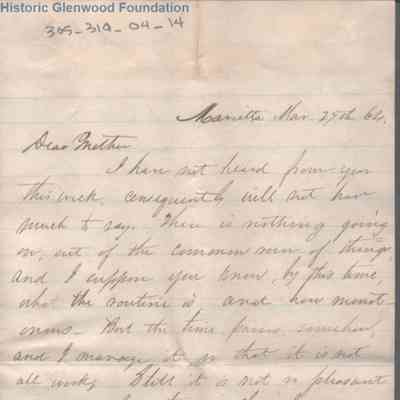 Historic Glenwood Foundation
305-310-04-14
Marietta Mar. 27th 64.
Dear Mother
I have not heard from you
this week, consequently will not have
much to say. There is nothing going
on, out of the common run of things
and I suppose you know, by this time,
what the routine is and how monot-
onous. But the time passes, somehow,
and I manage it so that it is not
all work. Still it is not so pleasant